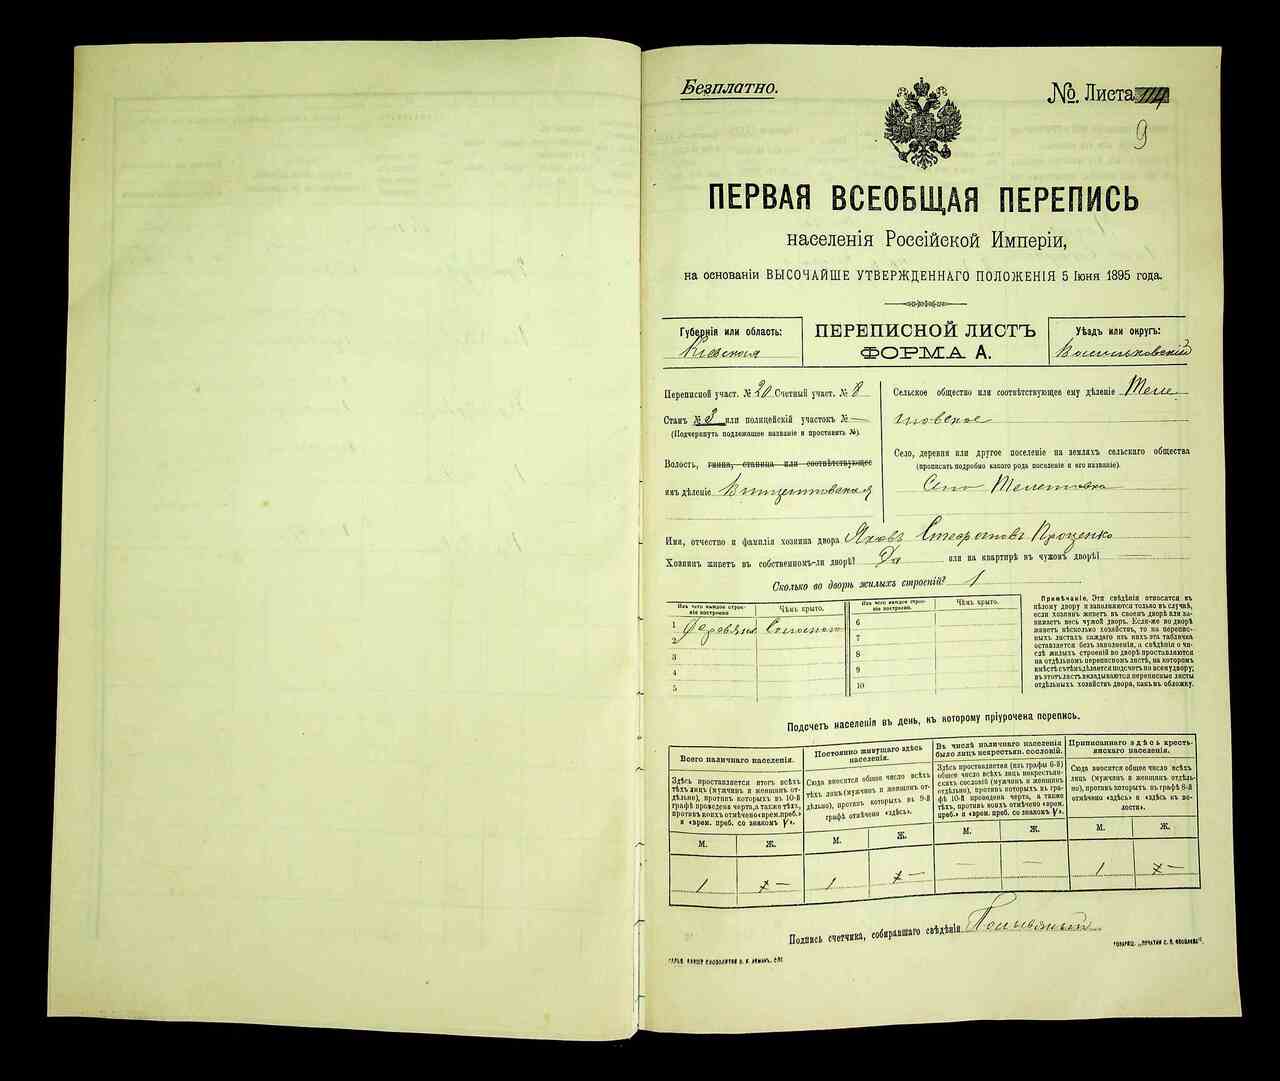 Безплатно.
№. Листа 114
9
ПЕРВАЯ ВСЕОБЩАЯ ПЕРЕПИСЬ
населенія Россійской Имперіи,
на основаніи ВЫСОЧАЙШЕ УТВЕРЖДЕННАГО ПОЛОЖЕНІЯ 5 Іюня 1895 года.
Губернія или область:
Кіевская
ПЕРЕПИСНОЙ ЛИСТЪ
ФОРМА А.
Уѣздъ или округъ:
Васильковскій
Переписной участ. № 20 Счетный участ. № 8
Станъ № 3 или полицейскій участокъ № —
(Подчеркнуть подлежащее названіе и проставить №).
Волость, гмина, станица или соотвѣтствующее
имъ дѣленіе
Сельское общество или соотвѣтствующее ему дѣленіе Теле
шовское
Село, деревня или другое поселеніе на земляхъ сельскаго общества
(прописать подробно какого рода поселеніе и его названіе).
Село Телешовка
Имя, отчество и фамилія хозяина двора Яковъ Стефановъ Проценко
Хозяинъ живетъ въ собственномъ-ли дворѣ? Да или на квартирѣ въ чужомъ дворѣ? —
Сколько во дворѣ жилыхъ строеній? 1
Изъ чего каждое строеніе построено.
Чѣмъ крыто.
1 Деревяное Соломою
2
3
4
5
Изъ чего каждое строеніе построено.
Чѣмъ крыто.
6
7
8
9
10
Примѣчаніе. Эти свѣдѣнія относятся къ
цѣлому двору и заполняются только въ случаѣ,
если хозяинъ живетъ въ своемъ дворѣ или занимаетъ весь чужой дворъ. Если-же во дворѣ
живетъ нѣсколько хозяйствъ, то на переписныхъ листахъ каждаго изъ нихъ эта табличка
оставляется безъ заполненія, а свѣдѣнія о числѣ жилыхъ строеній во дворѣ проставляются
на отдѣльномъ переписномъ листѣ, на которомъ
вмѣстѣ съ тѣмъ дѣлается подсчетъ по всему двору;
въ этотъ листъ вкладываются переписные листы
отдѣльныхъ хозяйствъ двора, какъ въ обложку.
Подсчетъ населенія въ день, къ которому пріурочена перепись.
Всего наличнаго населенія.
Здѣсь проставляется итогъ всѣхъ
тѣхъ лицъ (мужчинъ и женщинъ отдѣльно), противъ которыхъ въ 10-й
графѣ проведена черта, а также тѣхъ,
противъ коихъ отмѣчено «врем. преб.»
и «врем. преб. со знакомъ V».
Постоянно живущаго здѣсь
населенія.
Сюда вносится общее число всѣхъ
тѣхъ лицъ (мужчинъ и женщинъ отдѣльно), противъ которыхъ въ 9-й
графѣ отмѣчено «здѣсь».
Въ числѣ наличнаго населенія
было лицъ некрестьян. сословій.
Здѣсь проставляется (изъ графы 6-й)
общее число всѣхъ лицъ некрестьянскихъ сословій (мужчинъ и женщинъ
отдѣльно), противъ которыхъ въ графѣ 10-й проведена черта, а также
тѣхъ, противъ коихъ отмѣчено «врем.
преб.» и «врем. преб. со знакомъ V».
Приписаннаго здѣсь крестьянскаго населенія.
Сюда вносится общее число всѣхъ
лицъ (мужчинъ и женщинъ отдѣльно), противъ которыхъ въ графѣ 8-й
отмѣчено «здѣсь» и «здѣсь къ волости».
М. Ж. М. Ж. М. Ж. М. Ж.
1 — 1 — — — 1 —
Подпись счетчика, собиравшаго свѣдѣнія